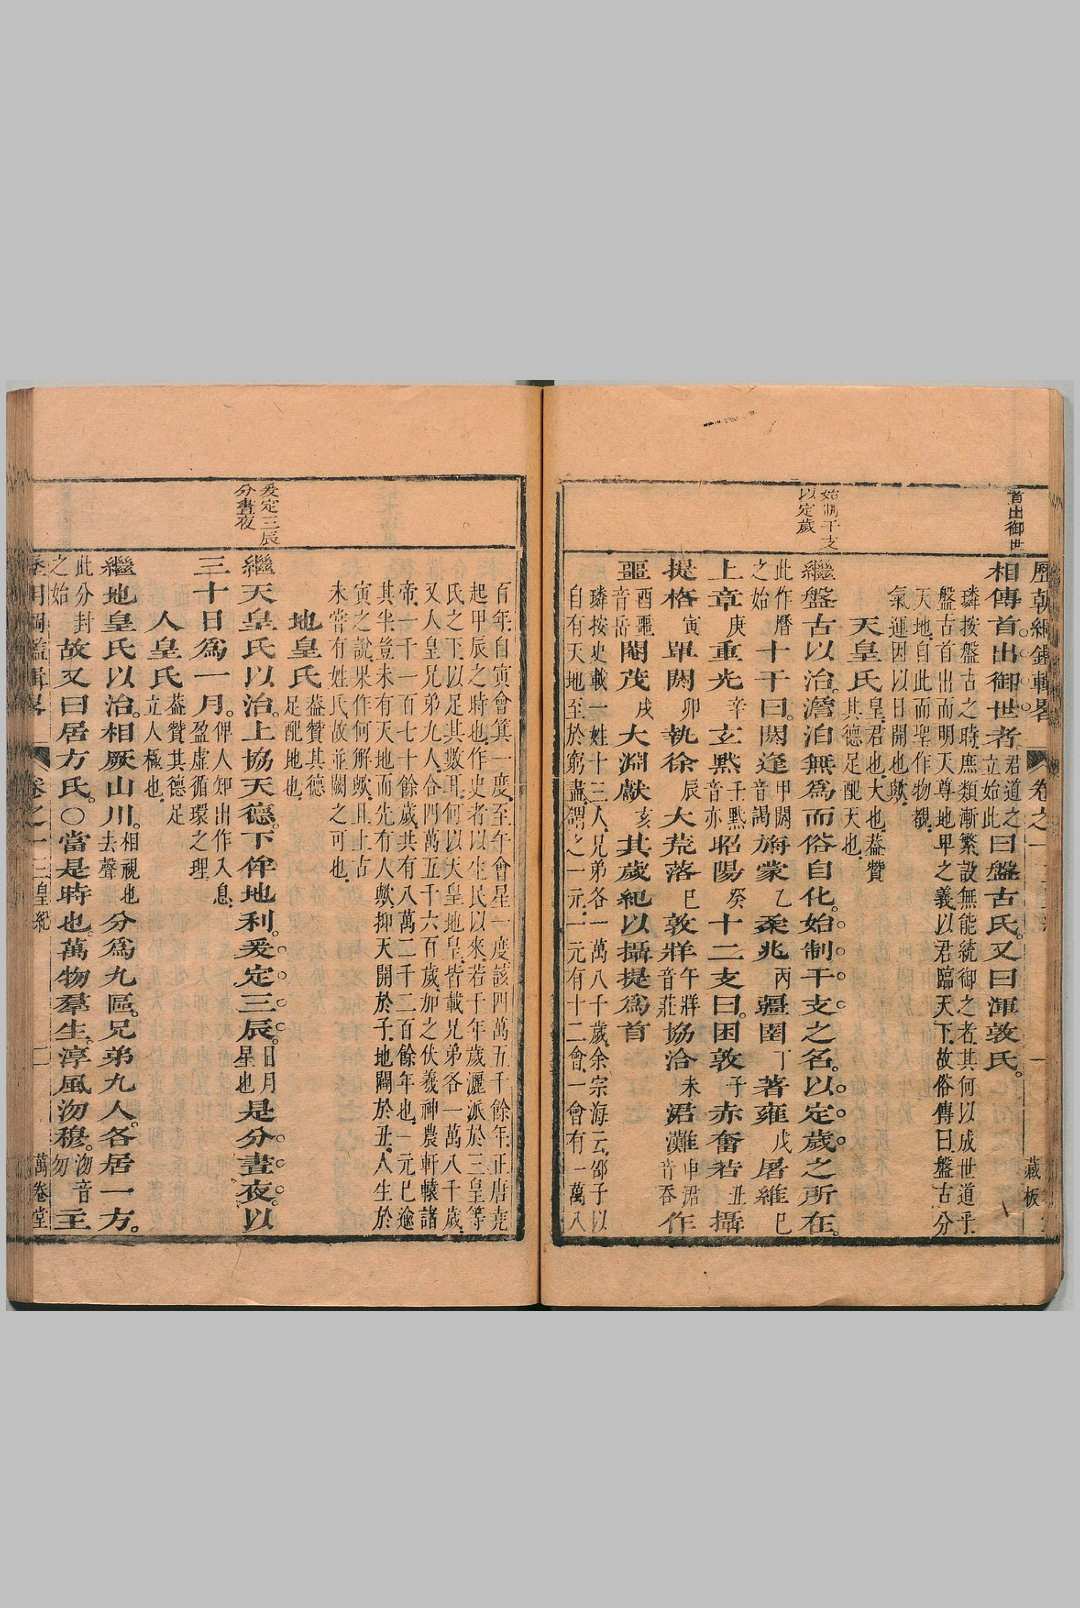 首出御世
相傳首出御世者君道之立始此曰盤古氏又曰渾敦氏
璘按盤古之時庶類漸繁設無能統御之者其何以成世道乎
盤古首出而明天尊地卑之義以君臨天下故俗傳曰盤古分
天地自此而聖作物覩
氣運因以日開也歟
天皇氏皇君也大也葢贊其德足配天也
始制干支
以定歲
繼盤古以治澹泊無爲而俗自化始制干支之名以定歲之所在
此作曆之始十干曰閼逢甲閼音謁旃蒙乙柔兆丙疆圉丁著雍戊屠維已
上章庚重光辛玄黓壬黓音亦昭陽癸十二支曰困敦子赤奮若丑攝
提格寅單閼卯執徐辰大荒落巳敦牂午牂音莊協洽未涒灘申涒音吞作
噩酉噩音岳閹茂戌大淵獻亥其歲紀以攝提爲首
璘按史載一姓十三人兄弟各一萬八千歲余宗海云邵子以
自有天地至於窮盡謂之一元一元有十二會一會有一萬八
百年自寅會箕一度至午會星一度該四萬五千餘年正唐堯
起甲辰之時也作史者以生民以來若干年歲灑派於三皇等
氏之下以足其數耳何以天皇地皇皆載兄弟各一萬八千歲
又人皇兄弟九人合四萬五千六百歲加之伏羲神農軒轅諸
帝一千一百七十餘歲共有八萬二千二百餘年也一元已逾
其半豈未有天地而先有人歟抑天開於子地闢於丑人生於
寅之說果作何解歟且上古
未嘗有姓氏故並闕之可也
地皇氏葢贊其德足配地也
爰定三辰
分晝夜
繼天皇氏以治上協天德下俾地利爰定三辰日月星也是分晝夜以
三十日爲一月俾人知出作入息盈虛循環之理
人皇氏葢贊其德足立人極也
繼地皇氏以治相厥山川相視也去聲分爲九區兄弟九人各居一方
此分封之始故又曰居方氏○當是時也萬物羣生淳風沕穆沕音勿主
卷之一 三皇紀 二 萬卷堂